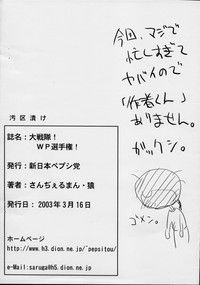 今回、マジで
忙しすぎて
ヤバイので
「作者くん」
ありません。
ガックシ。
ゴメン。
汚区漬け
誌名：大戦隊！
ＷＰ選手権！
発行：新日本ペプシ党
著者：さんぢぇるまん・猿
発行日： 2003年３月16日
ホームページ
http://www.h3.dion.ne.jp/~pepsitou/
e-Mail:saruga@h5.dion.ne.jp